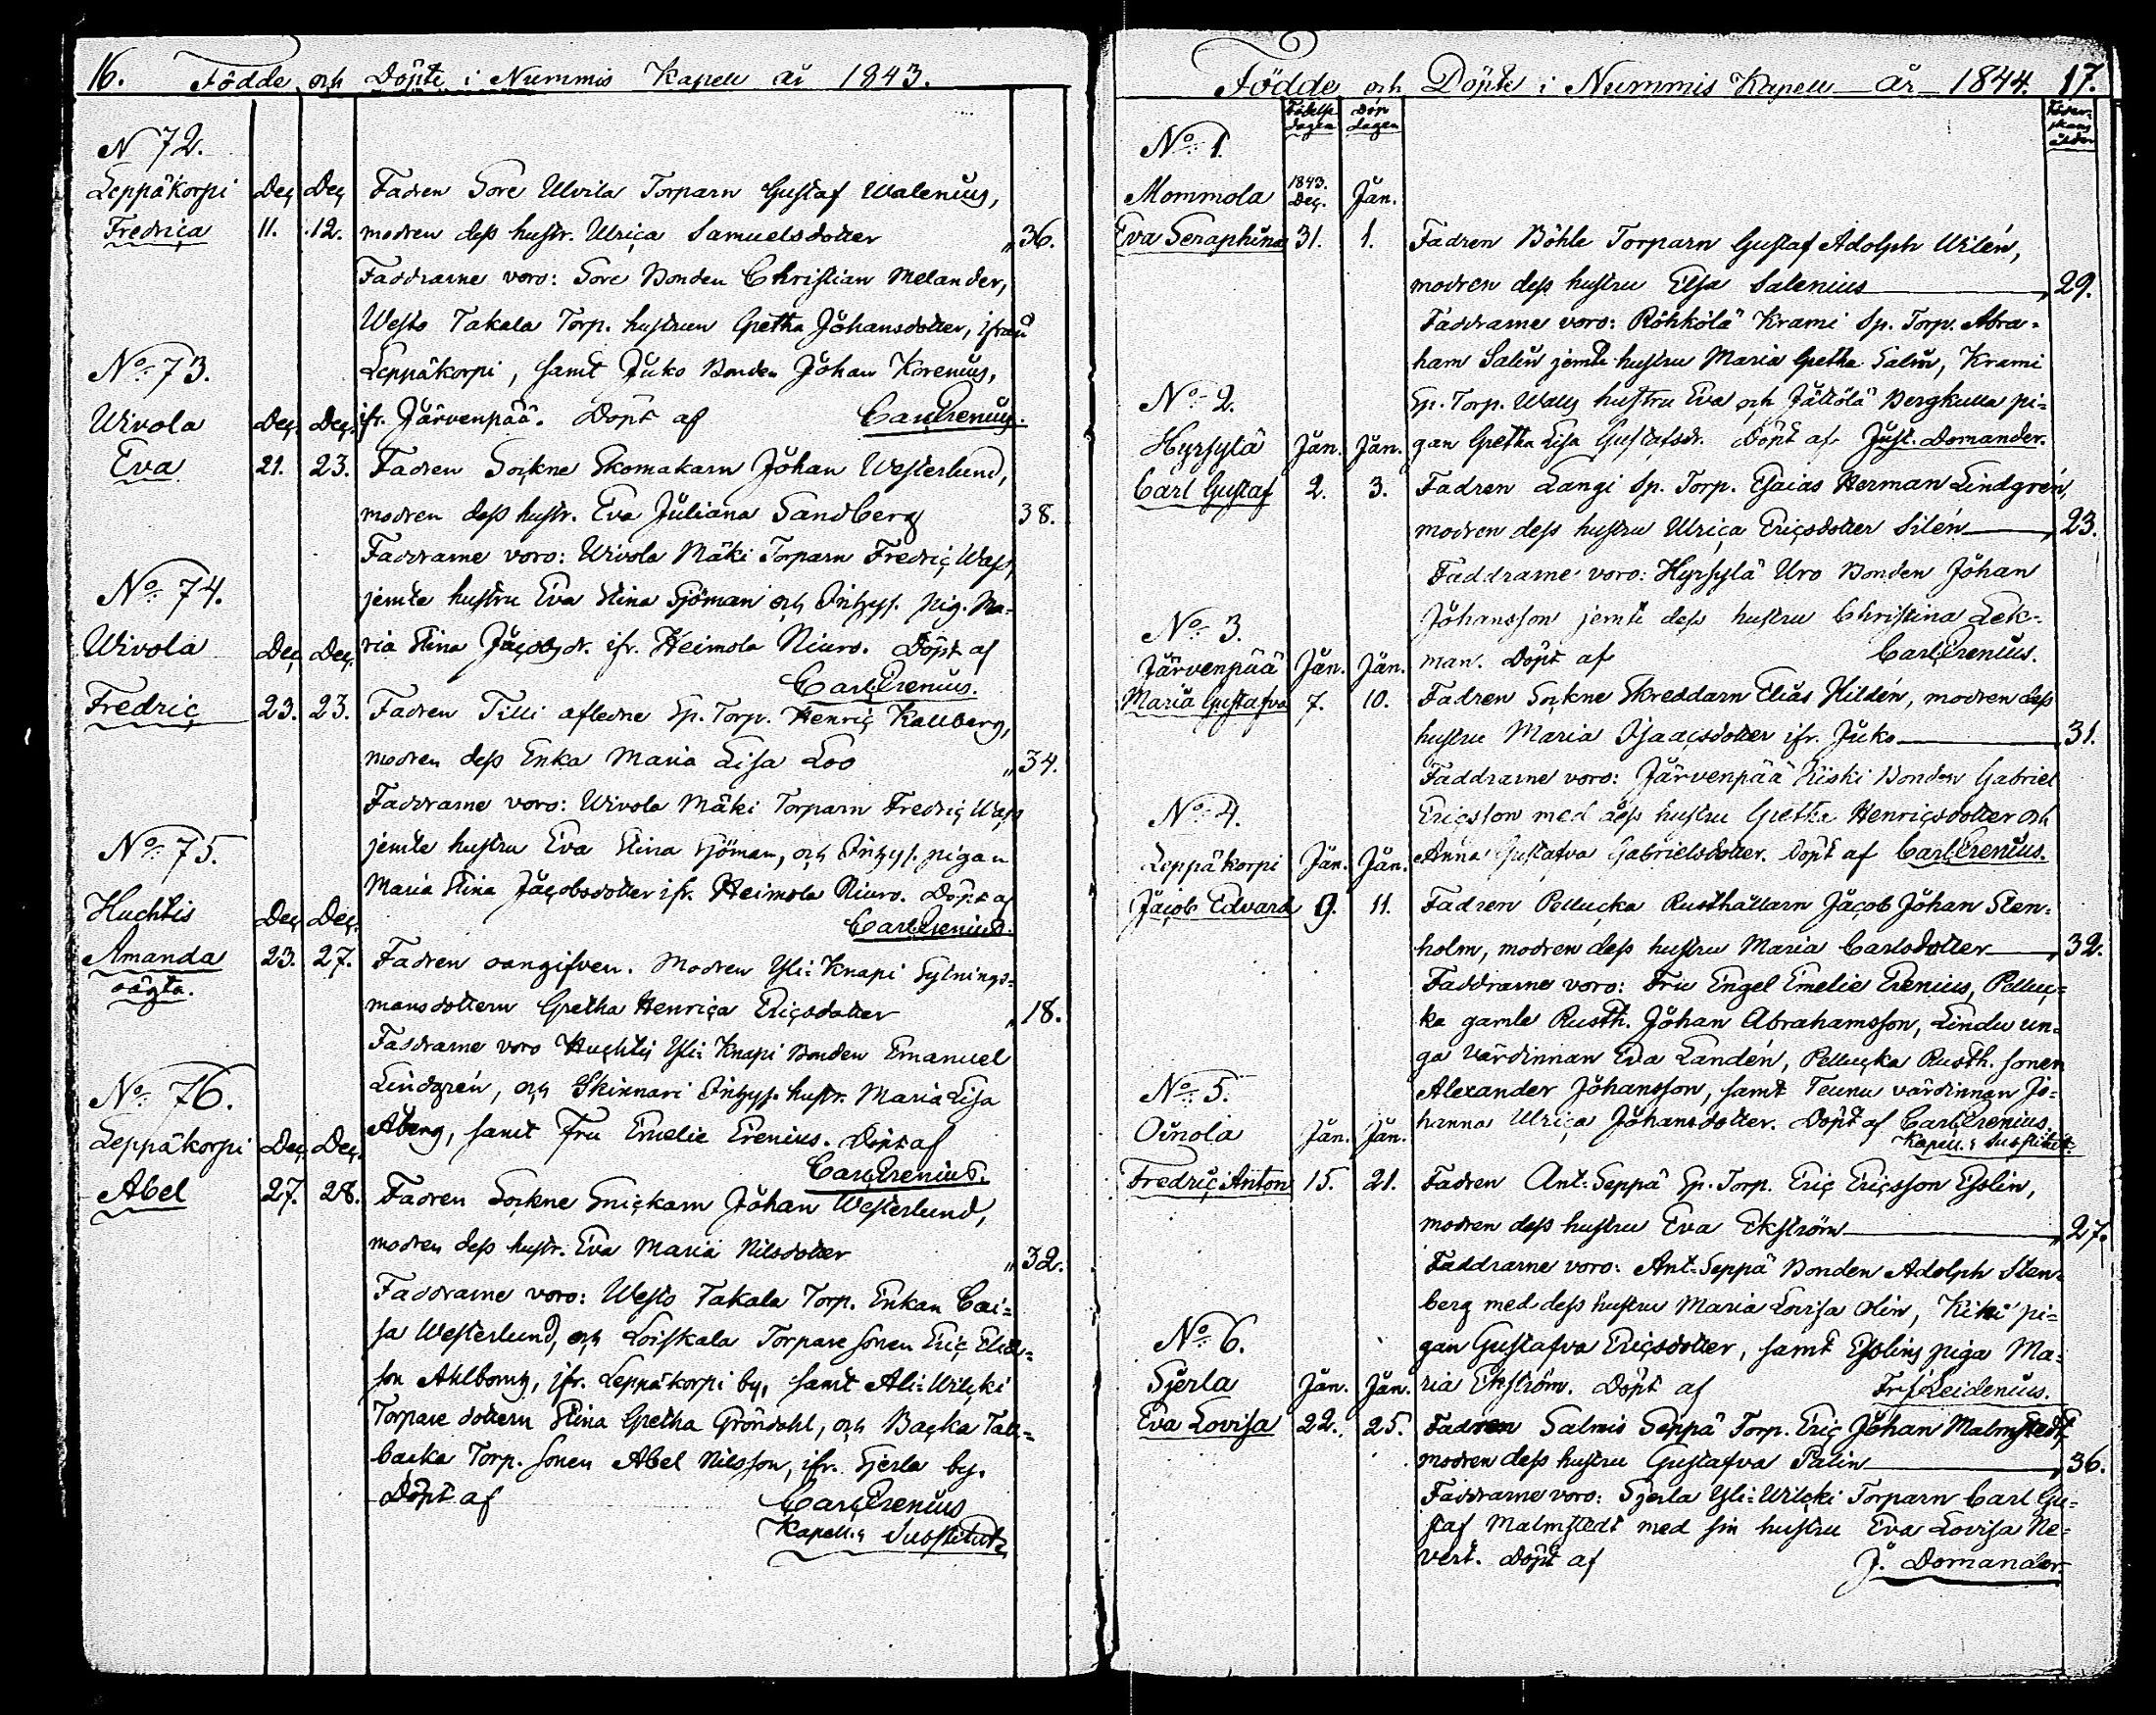 16. Födde och Döpte i Nummis Kapell år 1843.
N 72.
Leppäkorpi Dec Dec Fadren Sore Ulvila Torparn Gustaf Walenius,
Fredrica 11. 12. modren dess hustr. Ulrica Samuelsdotter " 36.
Faddrarne voro: Sore Bonden Christian Melander,
Westo Takala Torp. hustrun Gretha Johansdotter, ifrån
No 73. Leppäkorpi, samt Juko Bonden Johan Korenius,
Wivola Dec. Dec. ifr. Järvenpää. Döpt af Carl Erenius.
Eva 21. 23. Fadren Sockne Skomakarn Johan Westerlund,
modren dess hustr. Eva Juliana Sandberg 38.
Faddrarne voro: Wivola Mäki Torparn Fredric Wass,
No 74. jemte hustru Eva Stina Sjöman och Inhys. pig. Ma-
Wivola Dec Dec. ria Stina Jacobsdr. ifr. Heimola Niuro. Döpt af
Carl Erenius.
Fredric 23. 23. Fadren Tilli afledne Sp. Torp. Henric Kallberg,
modren dess Enka Maria Lisa Loo " 34.
Faddrarne voro: Wivola Mäki Torparn Fredric Wass
No 75. jemte hustru Eva Stina Sjöman, och Inhys. pigan
Maria Stina Jacobsdotter ifr. Heimola Niuro. Döpt af
Huchtis Dec Dec. Carl Erenius.
Amanda 23. 27. Fadren oangifven. Modren Yli-Knapi Sytnings-
oägta. mansdottern Gretha Henrica Ericsdotter " 18.
Faddrarne voro Huchtis Yli-Knapi Bonden Emanuel
No 76. Lindgrén, och Skinnari Inhys. hustr. Maria Lisa
Leppäkorpi Dec. Dec. Åberg, samt Fru Emelie Erenius. Döpt af
Carl Erenius.
Abel 27. 28. Fadren Sockne Snickarn Johan Westerlund,
modren dess hustr. Eva Maria Nilsdotter " 32.
Faddrarne voro: Westo Takala Torp. Enkan Cai-
sa Westerlund, och Loiskala Torpare sonen Eric
son Ahlbom, ifr. Leppäkorpi by, samt Ali-Wilcki
Torpare dottern Stina Gretha Gröndahl, och Backa
backa Torp. sonen Abel Nilsson, ifr. Sjerla by.
Döpt af Carl Erenius
Kapell.s Substitut.
Födde och Döpte i Nummis Kapell år 1844. 17.
Födelse dagen Döp dagen ålder
No 1.
Mommola 1843. Dec. Jan.
Eva Seraphina 31. 1. Fadren Böhle Torparn Gustaf Adolph Wilén,
modren dess hustru Elsa Salenius 29.
Faddrarne voro: Röhkölä Krami Sp. Torp. Abra-
ham Salin jemte hustru Maria Gretha Salin, Krami
No 2. Sp. Torp. Walls hustru Eva och Jättölä Bergkulla pi-
Hyrsylä Jan. Jan. gan Gretha Lisa Gustafsdr. Döpt af Just. Domander.
Carl Gustaf 2. 3. Fadren Langi Sp. Torp. Esaias Herman Lindgrén,
modren dess hustru Ulrica Ericsdotter Silén 23.
Faddrarne voro: Hyrsylä Uro Bonden Johan
No 3. Johansson jemte dess hustru Christina Lek-
Järvenpää Jan. Jan. man. Döpt af Carl Erenius.
Maria Gustafva 7. 10. Fadren Sockne Skreddarn Elias Hildén, modren dess
hustru Maria Isaacsdotter ifr. Juko 31.
Faddrarne voro: Järvenpää Kiski Bonden Gabriel
No 4. Ericsson med dess hustru Gretha Henricsdotter och
Leppäkorpi Jan. Jan. Anna Gustafva Gabrielsdotter. Döpt af Carl Erenius.
Jacob Edvard 9. 11. Fadren Pellucka Rusthållarn Jacob Johan Sten-
holm, modren dess hustru Maria Carlsdotter 32.
Faddrarne voro: Fru Engel Emelie Erenius, Pelluc-
ka gamle Rusth. Johan Abrahamsson, Lindu un-
ga värdinnan Eva Landén, Pellucka Rusth. sonen
No 5. Alexander Johansson, samt Teunu värdinnan Jo-
Oinola Jan. Jan. hanna Ulrica Johansdotter. Döpt af Carl Erenius.
Kapell.s Substitut.
Fredric Anton 15. 21. Fadren Ant-Seppä Sp. Torp. Eric Ericsson Esslin,
modren dess hustru Eva Ekström " 27.
Faddrarne voro: Ant-Seppä Bonden Adolph Sten-
berg med dess hustru Maria Lovisa Olin, Kiki pi-
No 6. gan Gustafva Ericsdotter, samt Esslins piga Ma-
Sjerla Jan. Jan. ria Ekström. Döpt af Leidenius.
Eva Lovisa 22. 25. Fadren Salmis Seppä Torp. Eric Johan Malmstedt,
modren dess hustru Gustafva Palin " 36.
Faddrarne voro: Sjerla Yli-Wilcki Torparn Carl Gu-
staf Malmstedt med sin hustru Eva Lovisa Ne-
vert. Döpt af J. Domander.